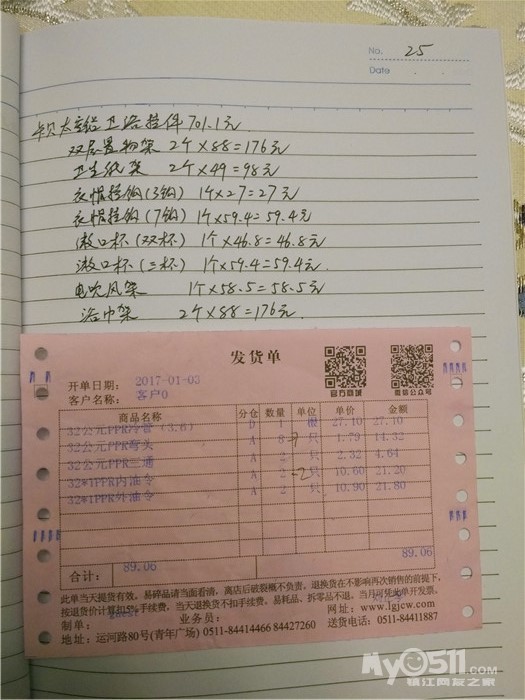 No. 25
Date
卡贝太空铝卫浴挂件 701.1元
双层置物架 2个×88=176元
卫生纸架 2个×49=98元
衣帽挂钩(3钩) 1个×27=27元
衣帽挂钩(7钩) 1个×59.4=59.4元
漱口杯(双杯) 1个×46.8=46.8元
漱口杯(三杯) 1个×59.4=59.4元
电吹风架 1个×58.5=58.5元
浴巾架 2个×88=176元
发货单
官方商城 微信公众号
开单日期: 2017-01-03
客户名称: 客户0
商品名称 分仓 数量 单位 单价 金额
32公元PPR冷管 (3.6) D 1 根 27.10 27.10
32公元PPR弯头 A 8 只 1.79 14.32
32公元PPR三通 A 2 只 2.32 4.64
32*1PPR内油令 A 2 只 10.60 21.20
32*1PPR外油令 A 2 只 10.90 21.80
89.06
合计: 89.06
此单当天提货有效。易碎品请当面看清,离店后破裂概不负责。退换货在不影响再次销售的前提下,
按退货价计算扣5%手续费,当天退换货不扣手续费,易耗品、拆零品不退。当月可凭此单开发票。
制单: 业务员: 网址: www.lgjcw.com
地址: 运河路80号(青年广场) 0511-84414466 84427260 送货电话: 0511-84411887
My0511.com
镇江网友之家